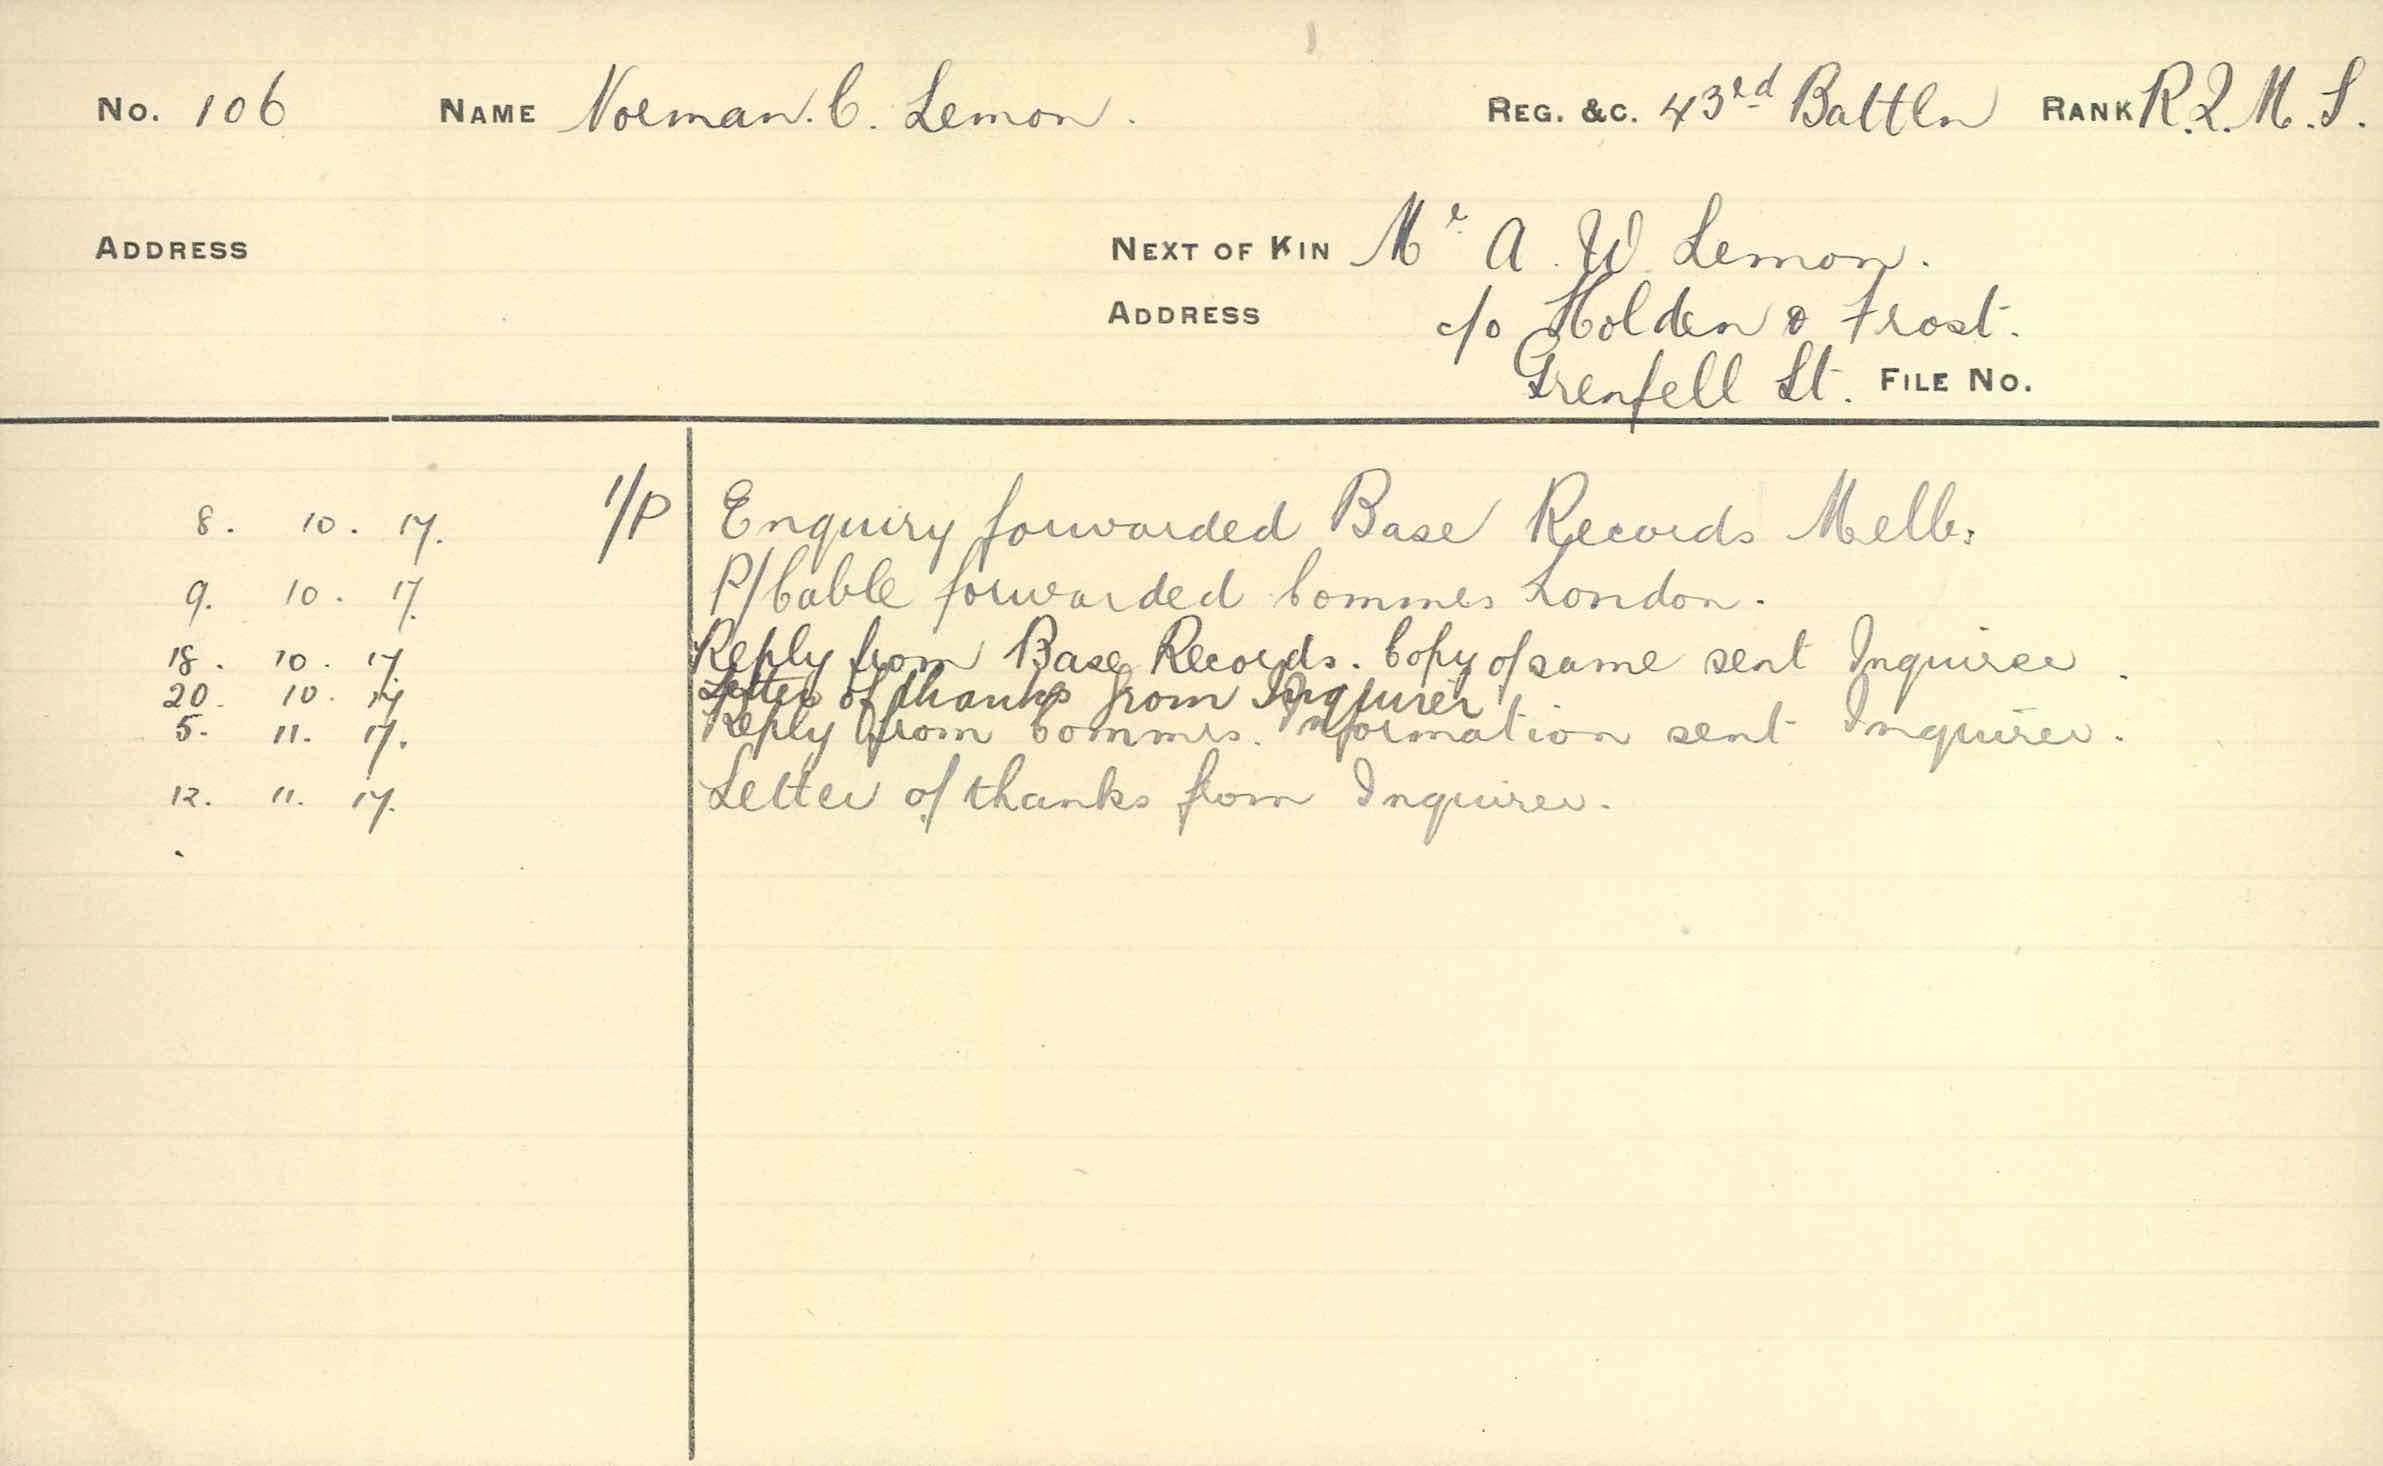 No. 106 NAME Norman. C. Lemon. REG. &C. 43rd Battln RANK R.Q.M.S.
ADDRESS NEXT OF KIN Mr A. W. Lemon.
ADDRESS c/o Holden & Frost.
Grenfell St. FILE No.
8. 10. 17. 1/P Enquiry forwarded Base Records Melb:
9. 10. 17. P/Cable forwarded Commrs London.
18. 10. 17. Reply from Base Records. Copy of same sent Inquirer.
20. 10. 17 Letter of thanks from Inquirer
5. 11. 17. Reply from Commrs. Information sent Inquirer.
12. 11. 17. Letter of thanks from Inquirer.